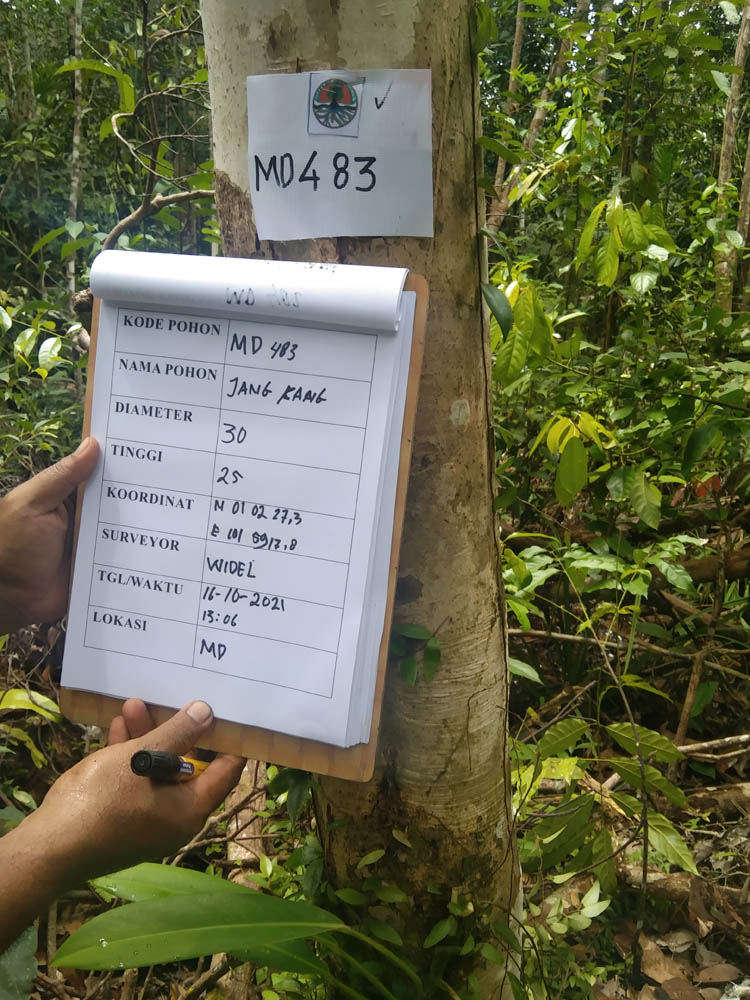 MD483
KODE POHON MD 483
NAMA POHON JANG KANG
DIAMETER 30
TINGGI 25
KOORDINAT N 01 02 27,3
E 101 5917,8
SURVEYOR WIDEL
TGL/WAKTU 16-10-2021
13:06
LOKASI MD